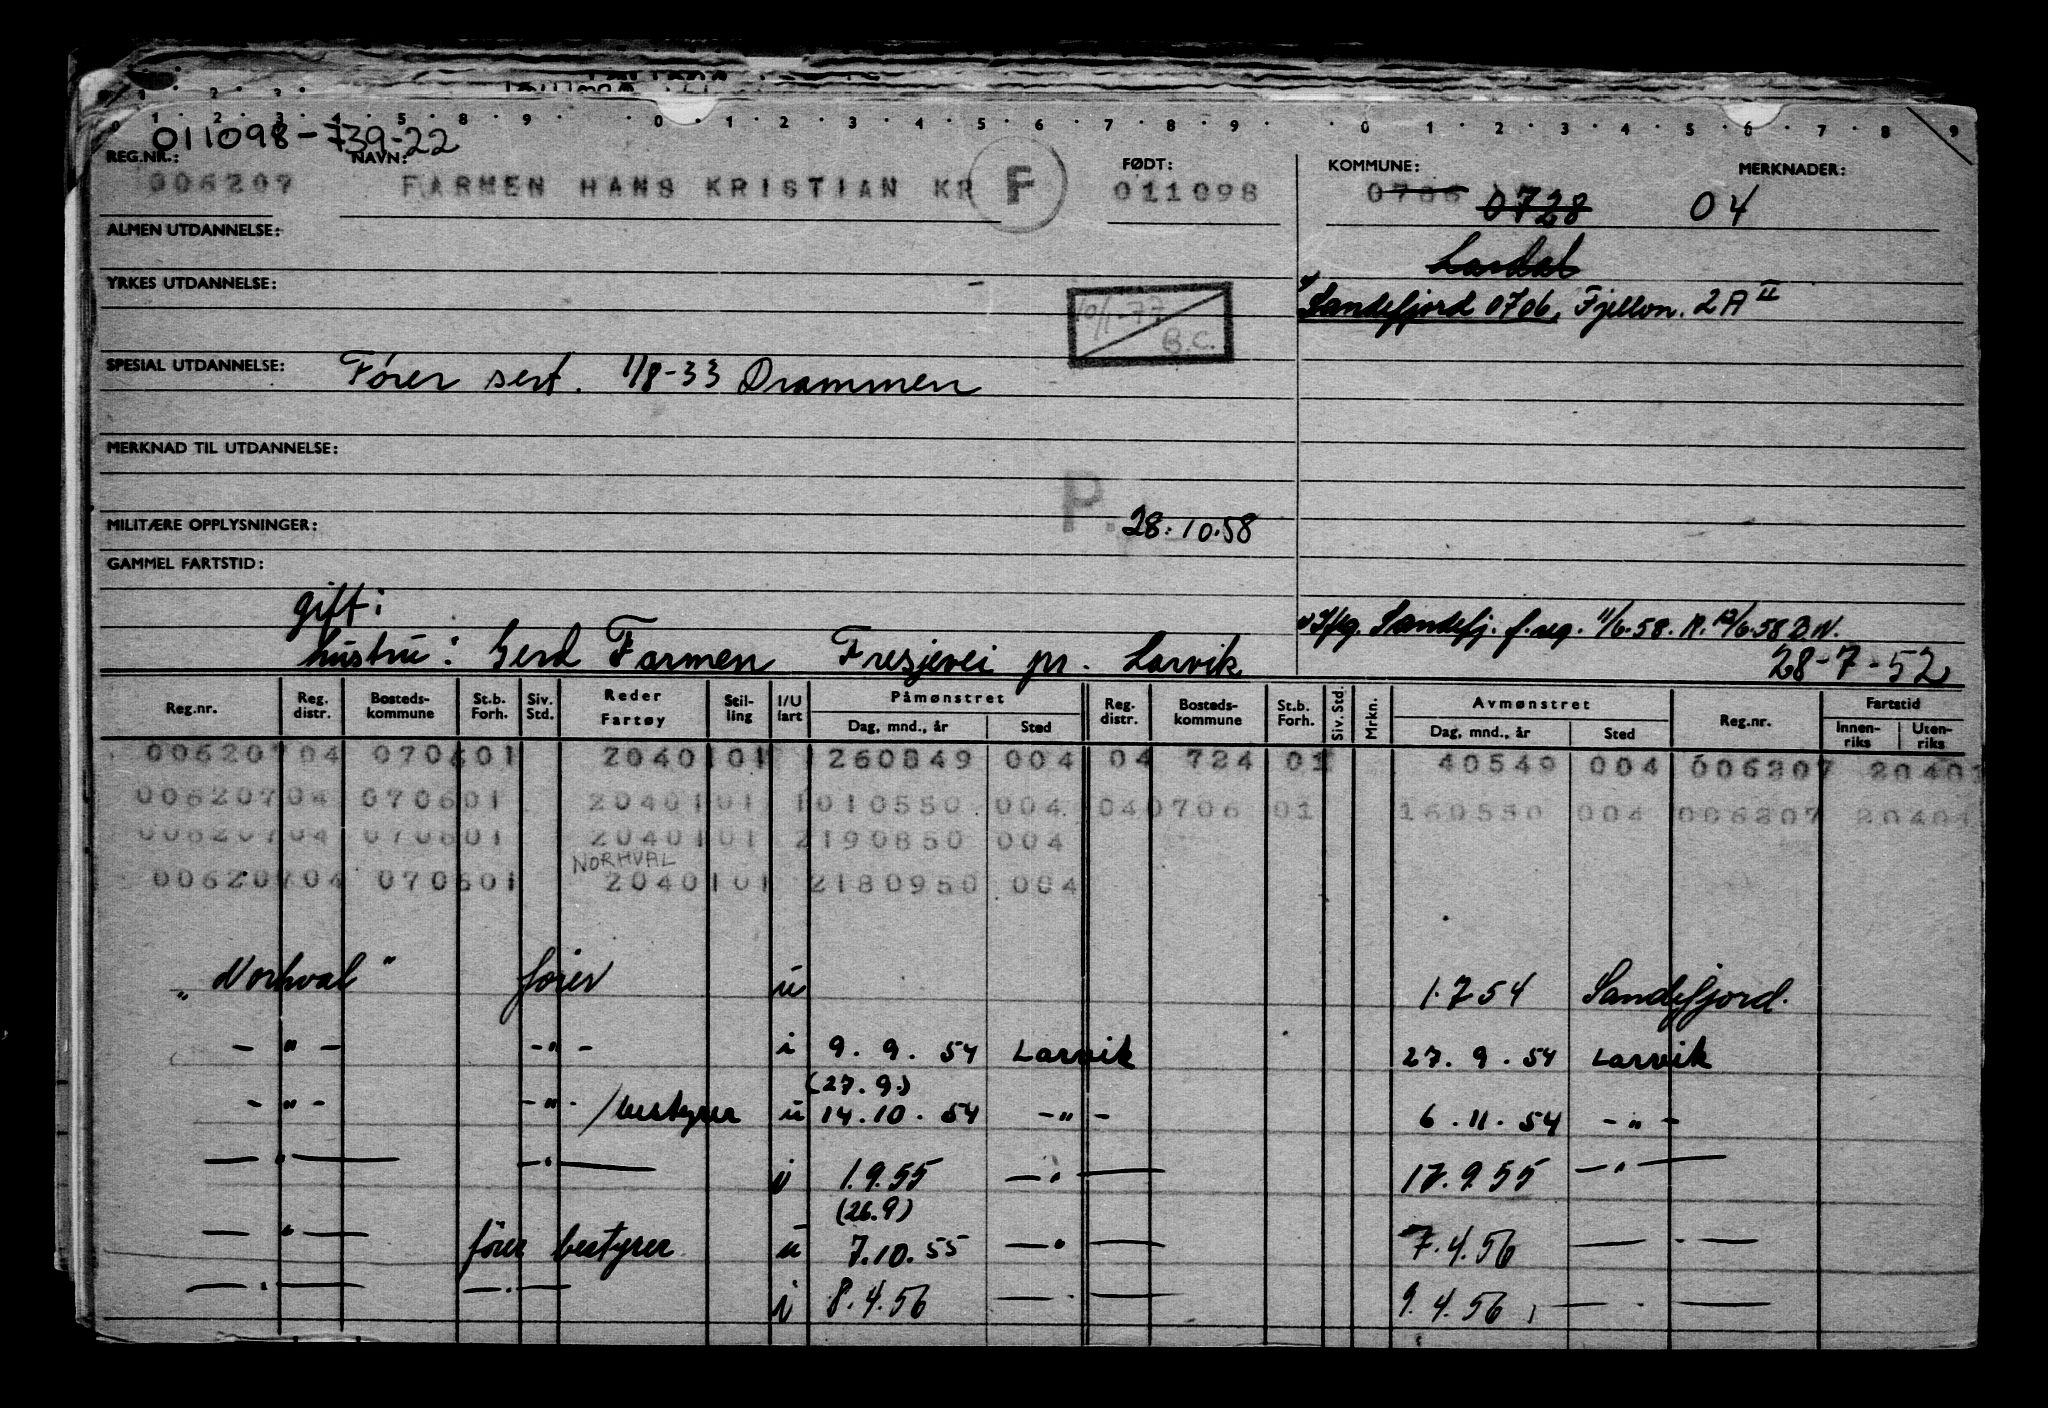 011098-739-22
REG.NR.: NAVN: FØDT: KOMMUNE: MERKNADER:
006207 FARMEN HANS KRISTIAN KR F 011098 0706 0728 04
ALMEN UTDANNELSE:
Lardal
YRKES UTDANNELSE:
Sandefjord 0706, Fjellvn. 2A II
10/1-77
B.C.
SPESIAL UTDANNELSE: Fører sert. 1/8-33 Drammen
MERKNAD TIL UTDANNELSE:
P.
MILITÆRE OPPLYSNINGER: 28.10.58
GAMMEL FARTSTID:
gift:
Sandefj. f. reg. 11/6.58. A. 12/6.58 B.N.
hustru: Gerd Farmen Fresjevei pr. Larvik
28-7-52
Reg.nr. Reg. distr. Bosteds-kommune St.b. Forh. Siv. Std. Reder Fartøy Stil-ling I/U fart Påmønstret Dag, mnd., år Sted Reg. distr. Bosteds-kommune St.b. Forh. Siv. Std. Mrkn. Avmønstret Dag, mnd., år Sted Reg.nr. Fartstid Innen-riks Uten-riks
006207 04 0706 01 2040101 1260849 004 04 724 01 40549 004 006207 20401
006207 04 0706 01 2040101 1010550 004 04 0706 01 160550 004 006207 20401
006207 04 0706 01 2040101 2190850 004
NORHVAL
006207 04 0706 01 2040101 2180950 004
"Norhval" fører u 1.7 54 Sandefjord.
- " - - " - i 9. 9. 54 Larvik 27. 9. 54 Larvik
(27. 9.)
- " - - " - /bestyrer u 14.10. 54 - " - 6. 11. 54 - " -
- " - - " - i 1.9.55 - " - 17.9.55 - " -
(26.9)
- " - fører bestyrer u 7.10.55 - " - 7.4.56 - " -
- " - - " - i 8.4.56 - " - 9.4.56 - " -